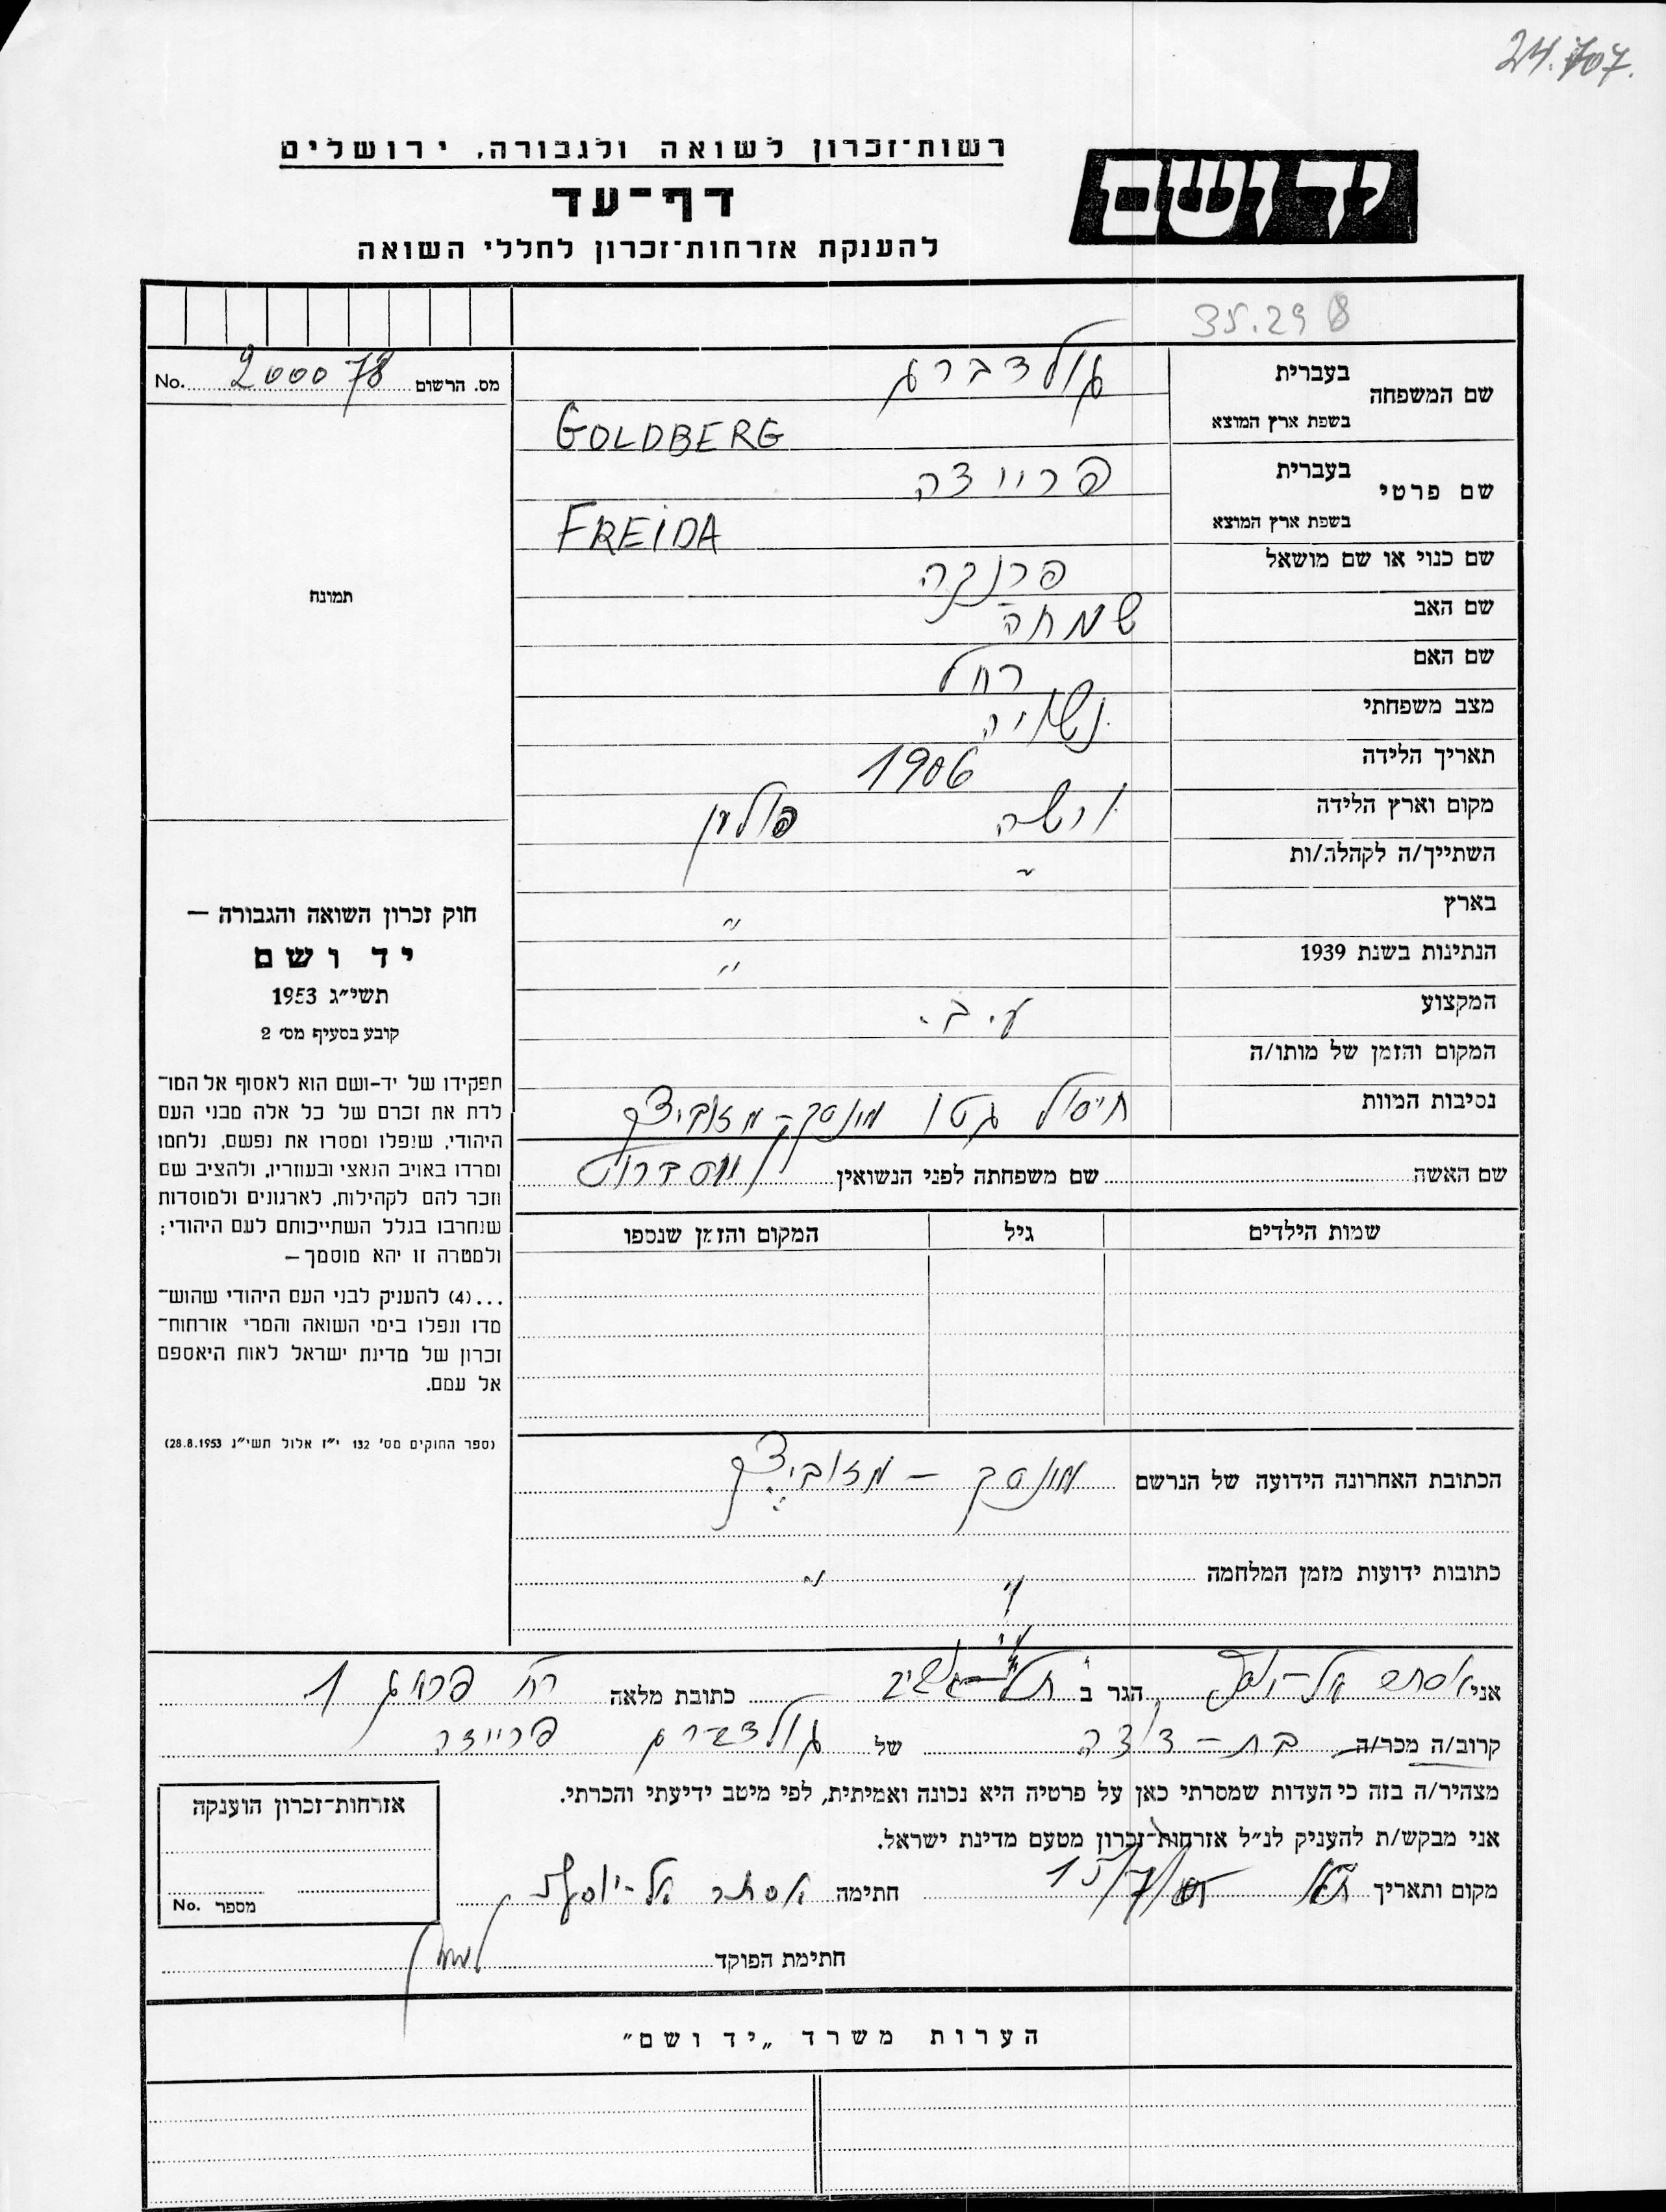 24.707.
רשות־זכרון לשואה ולגבורה, ירושלים
יד ושם
דף־עד
להענקת אזרחות־זכרון לחללי השואה
35.298
מס. הרשום 200078 No.
שם המשפחה בעברית גולדברג
בשפת ארץ המוצא GOLDBERG
שם פרטי בעברית פריידה
בשפת ארץ המוצא FREIDA
שם כנוי או שם מושאל פרנקה
שם האב שמחה
שם האם רחל
מצב משפחתי נשואה
תאריך הלידה 1906
מקום וארץ הלידה ורשה פולין
השתייך/ה לקהלה/ות "
בארץ "
הנתינות בשנת 1939 "
המקצוע ע.ב.
המקום והזמן של מותו/ה
נסיבות המוות חיסול גטו מינסק-מזוביצק
שם האשה שם משפחתה לפני הנשואין
שמות הילדים גיל המקום והזמן שנספו
הכתובת האחרונה הידועה של הנרשם מינסק - מזוביצק
כתובות ידועות מזמן המלחמה " "
תמונה
חוק זכרון השואה והגבורה —
יד ושם
תשי״ג 1953
קובע בסעיף מס׳ 2
תפקידו של יד-ושם הוא לאסוף אל המו־
לדת את זכרם של כל אלה מבני העם
היהודי, שנפלו ומסרו את נפשם, נלחמו
ומרדו באויב הנאצי ובעוזריו, ולהציב שם
וזכר להם לקהילות, לארגונים ולמוסדות
שנחרבו בגלל השתייכותם לעם היהודי;
ולמטרה זו יהא מוסמך —
...(4) להעניק לבני העם היהודי שהוש־
מדו ונפלו בימי השואה והמרי אזרחות־
זכרון של מדינת ישראל לאות היאספם
אל עמם.
(ספר החוקים מס׳ 132 י״ז אלול תשי״ג 28.8.1953)
אני אסתר אל-יוסף הגר ב תל-אביב כתובת מלאה רח פרוג 1
קרוב/ה מכר/ה בת-דודה של גולדברג פריידה
מצהיר/ה בזה כי העדות שמסרתי כאן על פרטיה היא נכונה ואמיתית, לפי מיטב ידיעתי והכרתי.
אני מבקש/ת להעניק לנ״ל אזרחות־זכרון מטעם מדינת ישראל.
מקום ותאריך 15/7/ חתימה אסתר אל-יוסף
חתימת הפוקד
אזרחות־זכרון הוענקה
מספר No.
הערות משרד „יד ושם״